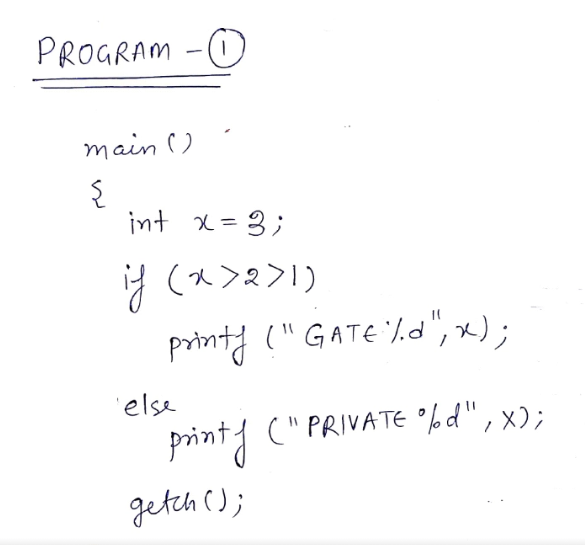 PROGRAM - ①
main ()
{
int x = 3;
if (x>2>1)
printf ("GATE %d", x);
else
printf ("PRIVATE %d", x);
getch();